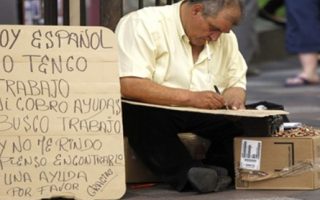 OY ESPAÑOL
O TENGO
TRABAJO
NI COBRO AYUDAS
BUSCO TRABAJO
Y NO ME RINDO
PIENSO ENCONTRARLO
UNA AYUDA
POR FAVOR
GRACIAS